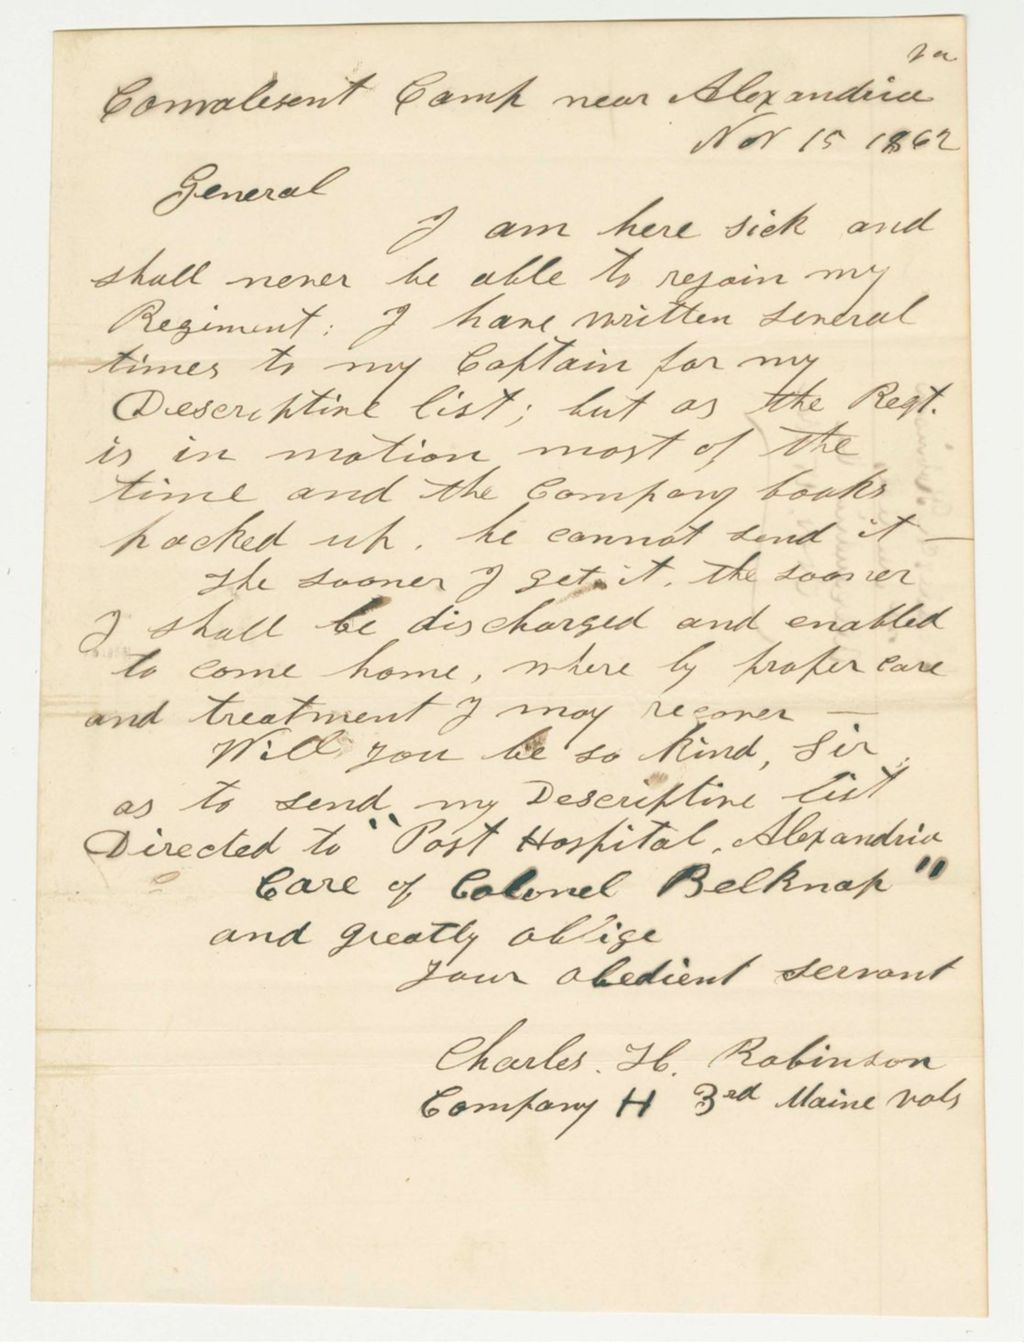 Convalesent Camp near Alexandria Va
Nov 15 1862
General
I am here sick and
shall never be able to rejoin my
Regiment: I have written several
times to my Captain for my
Descriptive list; but as the Regt.
is in motion most of the
time and the Company books
packed up, he cannot send it —
The sooner I get it, the sooner
I shall be discharged and enabled
to come home, where by proper care
and treatment I may recover —
Will you be so kind, Sir,
as to send my Descriptive list
Directed to "Post Hospital, Alexandria
Care of Colonel Belknap"
and greatly oblige
your obedient servant
Charles. H. Robinson
Company H 3rd Maine Vols